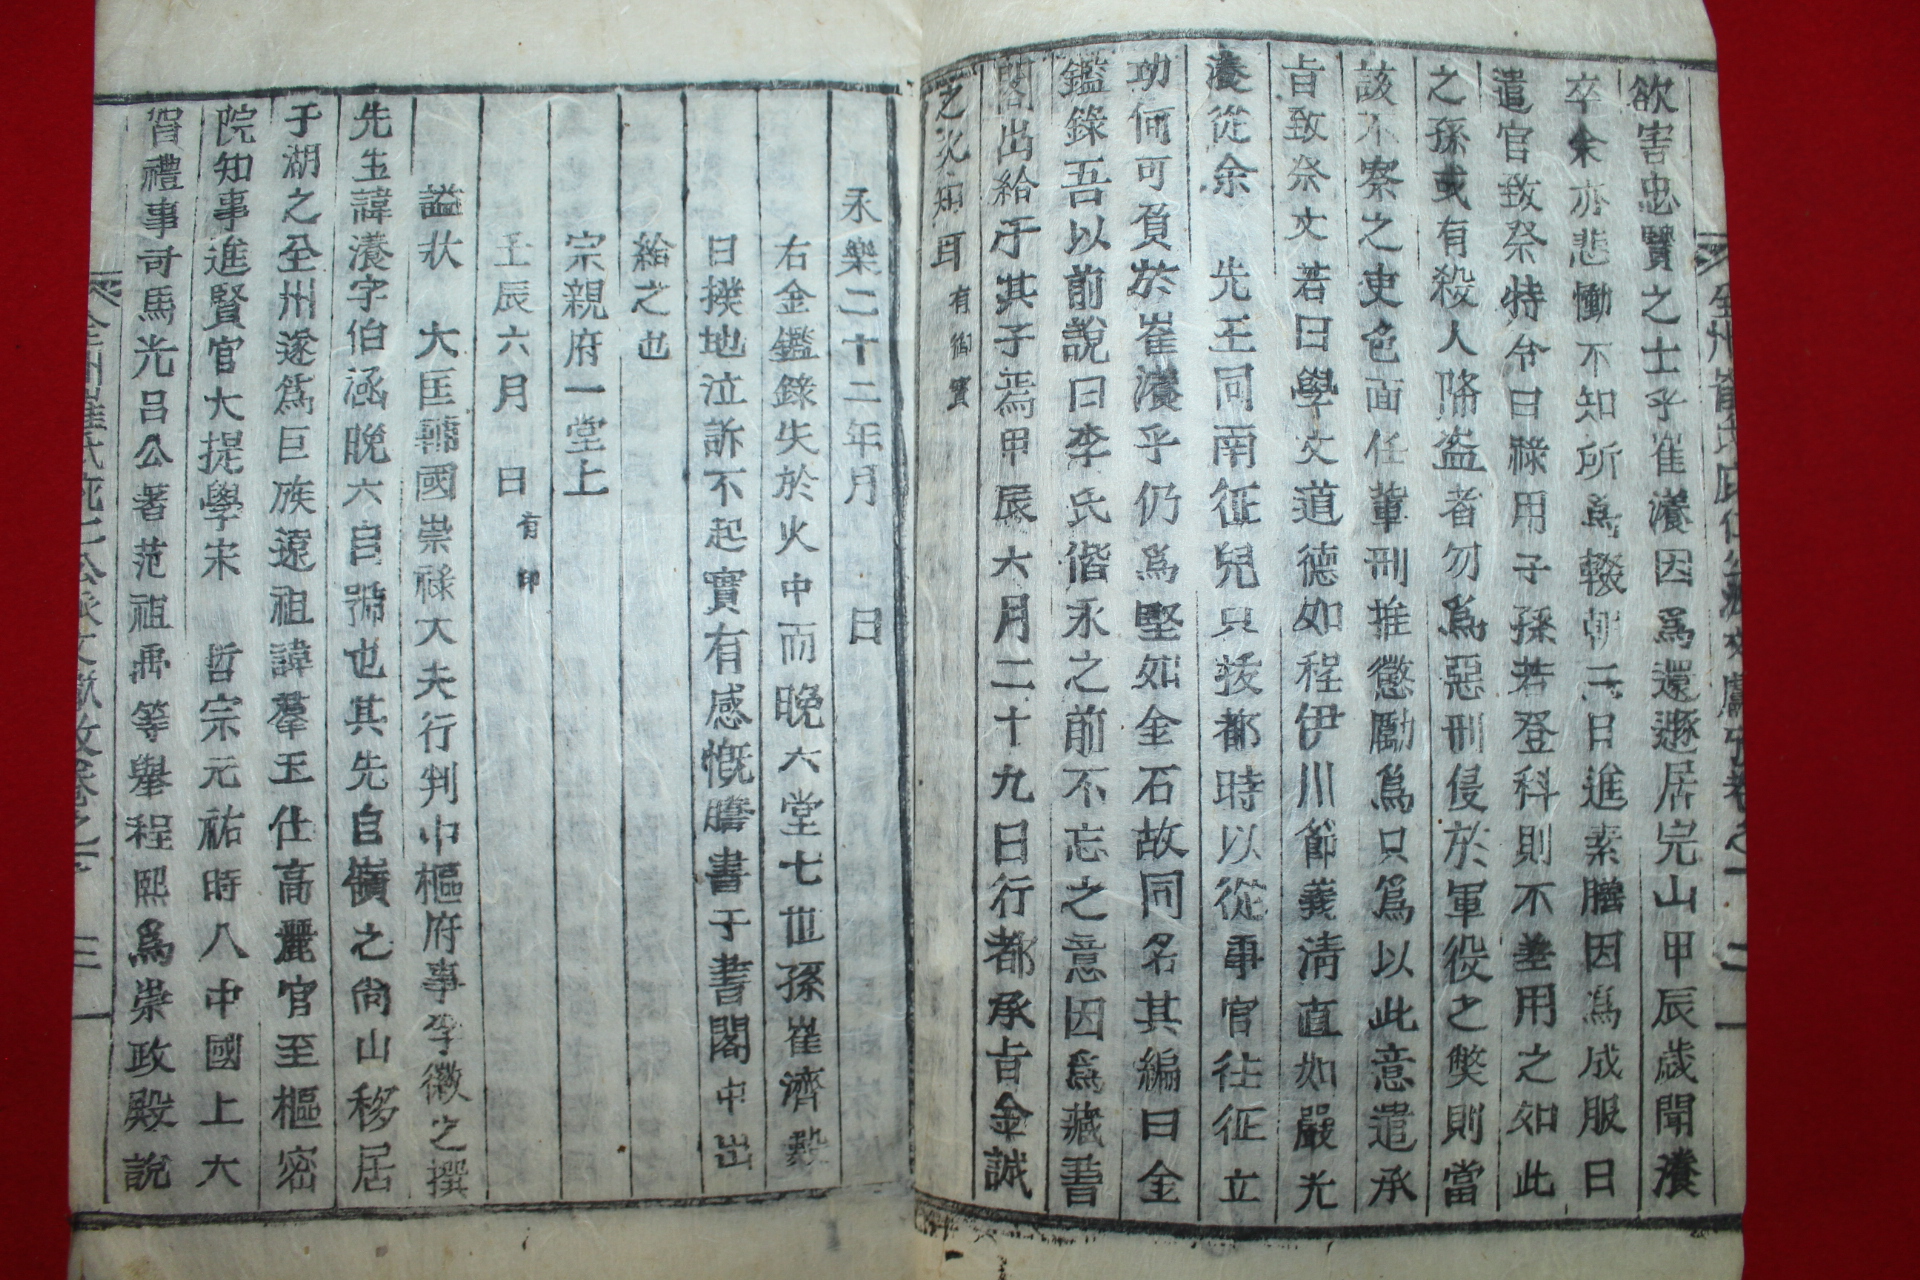 欲害忠賢之士乎崔瀁因爲還遯居完山甲辰歲聞瀁
卒余亦悲慟不知所爲輟朝三日進素膳因爲成服日
遣官致祭特令曰祿用子孫若登科則不羞用之如此
之孫或有殺人降盜者勿爲惡刑侵於軍役之獘則當
該不察之吏色面任葷刑推懲勵爲只爲以此意遣承
旨致祭文若曰學文道德如程伊川節義淸直如嚴光
瀁從余 先王同南征兒只拔都時以從事官往征立
功何可負於崔瀁乎仍爲堅如金石故同名其編曰金
鑑錄吾以前說曰李氏偕永之前不忘之意因爲藏書
閣出給于其子焉甲辰六月二十九日行都承旨金誠
之次知耳 有御寶
永樂二十二年月 日
右金鑑錄失於火中而晩六堂七世孫崔濟毅
日撲地泣訴不起實有感慨謄書于書閣中出
給之也
宗親府一堂上
壬辰六月 日 有印
諡狀 大匡輔國崇祿大夫行判中樞府事李徽之撰
先生諱瀁字伯涵晩六自號也其先自嶺之尙山移居
于湖之全州遂爲巨族遠祖諱羣玉仕高麗官至樞密
院知事進賢官大提學宋 哲宗元祐時入中國上大
加禮事司馬光呂公著范祖禹等擧程熙爲崇政殿說
全州崔氏派文獻考卷之一 二
全州崔氏 七公派文獻攷卷之一 三